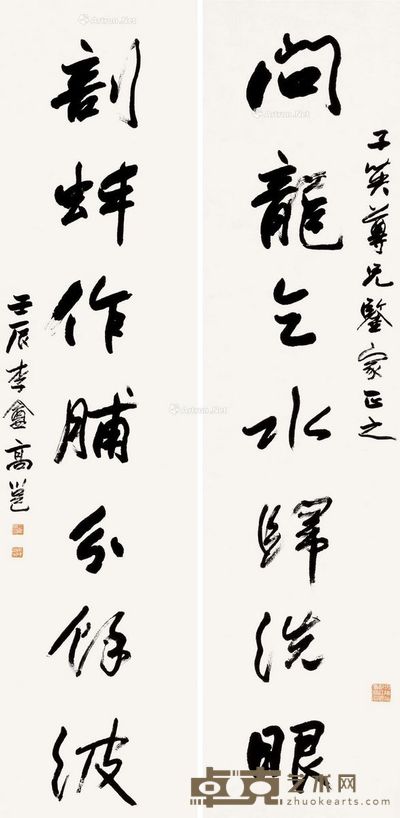 問龍乞水歸洗眼
子英尊兄鑒家正之
剖蚌作脯分餘波
壬辰李盦高邕
Artron.Net
卓克艺术网
zhuokearts.com